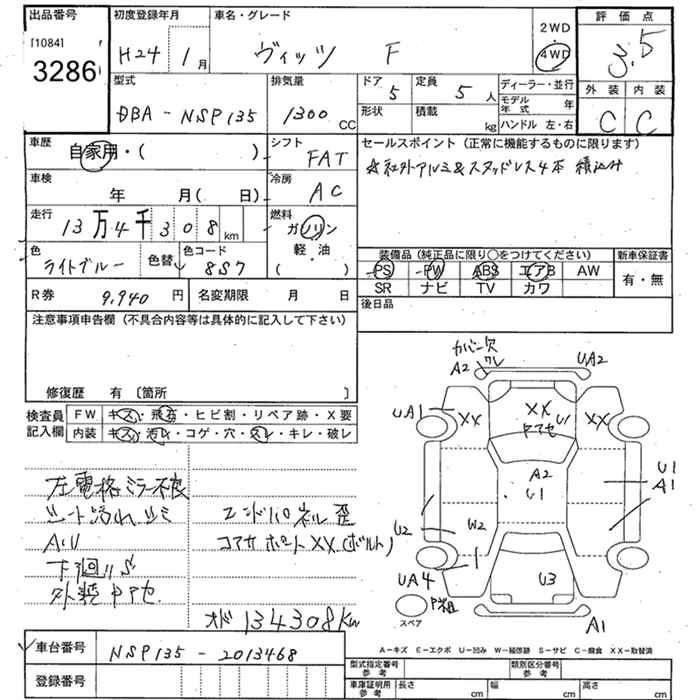 出品番号
[1084]
3286
初度登録年月
H24 1月
車名・グレード
ヴィッツ F
2WD
4WD
評価点
3.5
型式
DBA-NSP135
排気量
1300 CC
ドア
5
定員
5人
形状
積載
kg
ディーラー・並行
モデル年式 年
ハンドル 左・右
外装 内装
C C
車歴
自家用・( )
シフト
FAT
車検
年 月( 日)
冷房
AC
走行
13万4千308km
燃料
ガソリン
軽・油
( )
色
ライトブルー
色替
色コード
8S7
R券 9,940円
名変期限 月 日
セールスポイント (正常に機能するものに限ります)
☆社外アルミ&スタッドレス4本 積込み
装備品 (純正品に限り〇をつけてください)
新車保証書
PS PW ABS エアB AW
SR ナビ TV カワ
有・無
後日品
注意事項申告欄 (不具合内容等は具体的に記入して下さい)
修復歴 有 [箇所 ]
検査員
記入欄
FW キズ・飛石・ヒビ割・リペア跡・X要
内装 キズ・汚レ・コゲ・穴・スレ・キレ・破レ
左電格ミラー不良
シート汚れシミ
下廻りS
エンドパネル歪
コアサポートXX(ボルト)
オド134308km
カバー欠
A2 ワレ
UA2
UA1
XX
XX
U1
XX
A2
U1
U1
A1
U2
W2
UA4
U3
A1
スペア
A-キズ E-エクボ U-凹み W-補修跡 S-サビ C-腐食 XX-取替済
車台番号
NSP135-2013468
登録番号
型式指定番号
参考
類別区分番号
参考
車庫証明用
参考
長さ cm
幅 cm
高さ cm